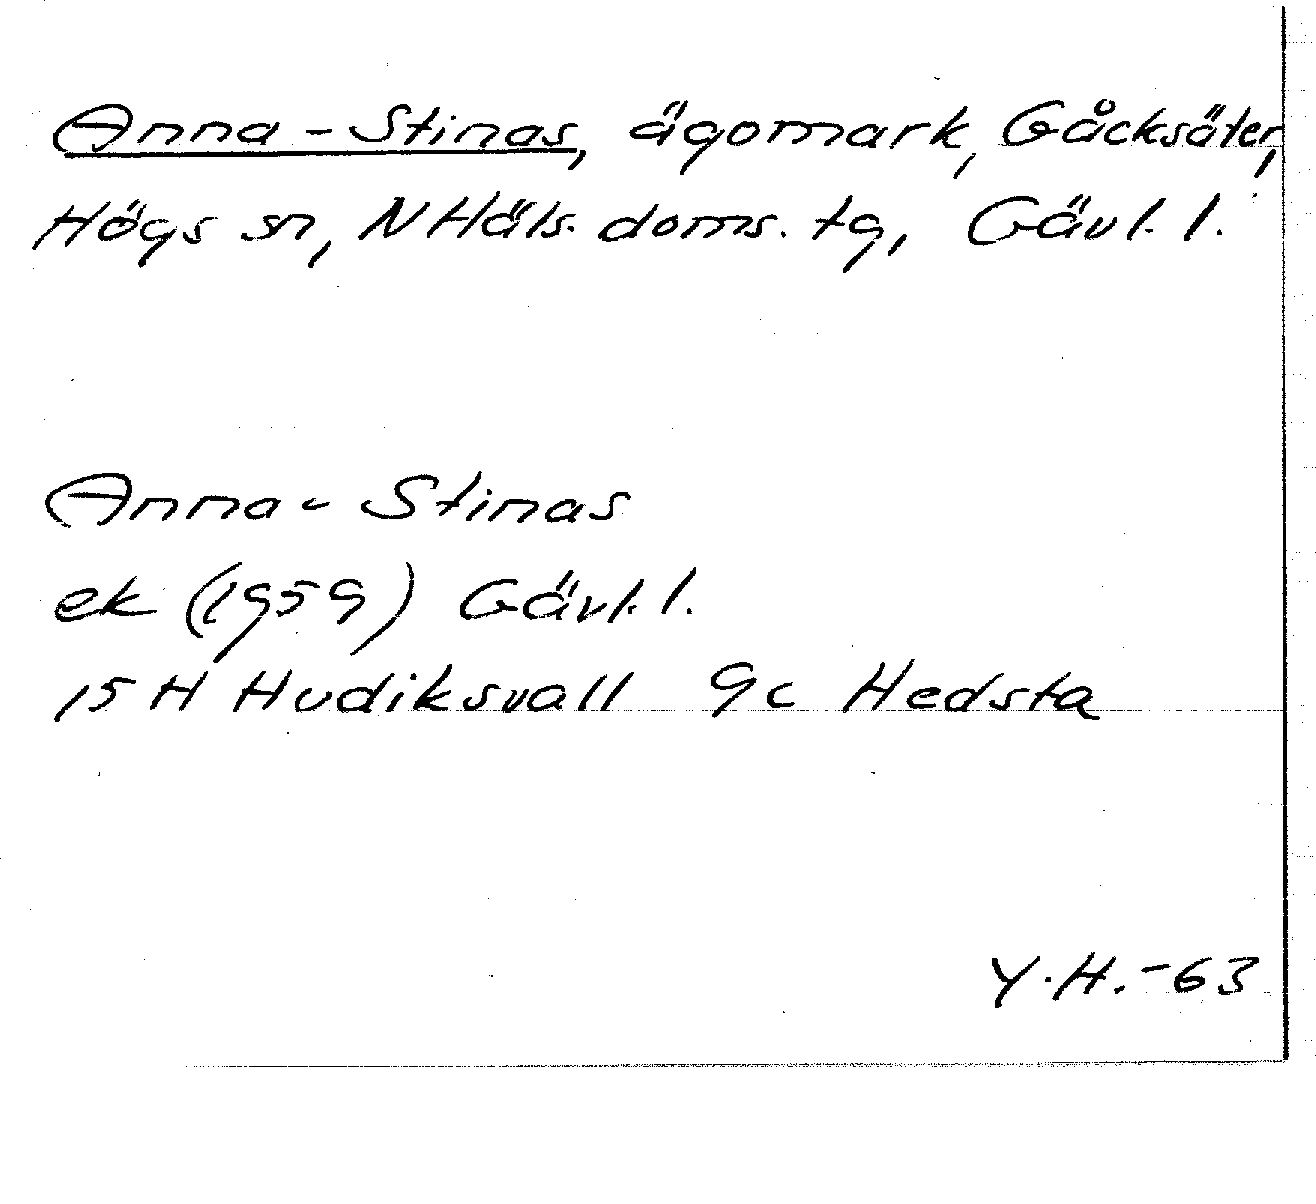 Anna-Stinas, ägomark, Gåcksäter,
Högs sn, NHäls. doms. tg, Gävl. l.
Anna-Stinas
ek (1959) Gävl. l.
15H Hudiksvall 9c Hedsta
Y.H.-63